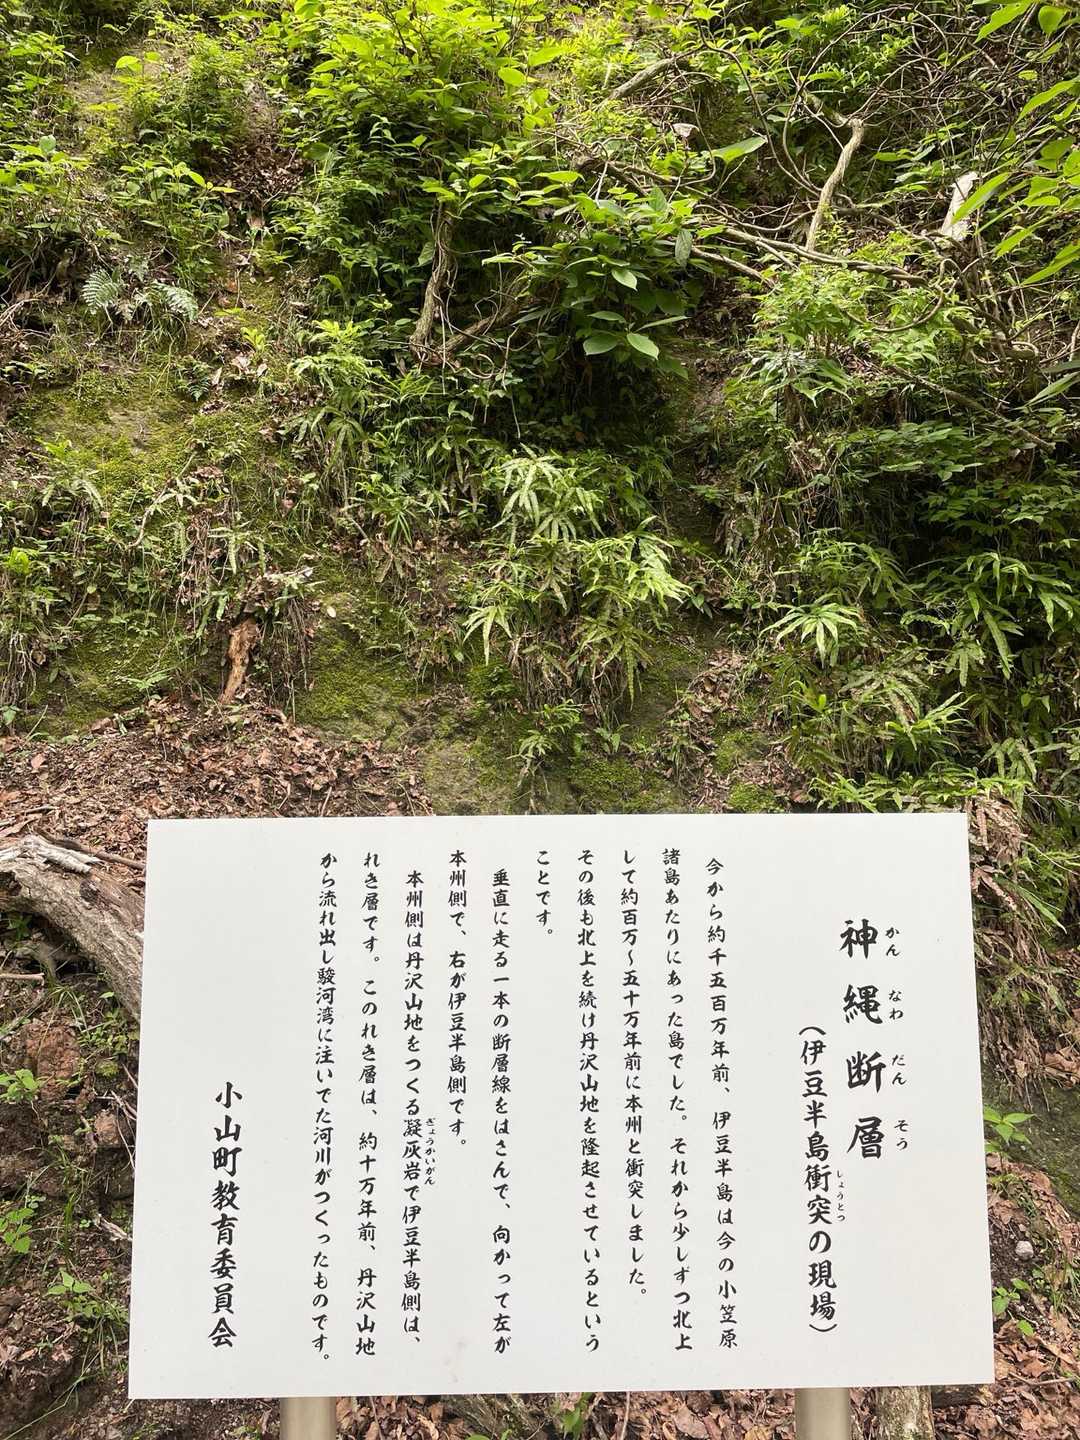 神縄断層
かんなわだんそう
（伊豆半島衝突の現場）
しょうとつ
今から約千五百万年前、伊豆半島は今の小笠原
諸島あたりにあった島でした。それから少しずつ北上
して約百万〜五十万年前に本州と衝突しました。
その後も北上を続け丹沢山地を隆起させているという
ことです。
垂直に走る一本の断層線をはさんで、向かって左が
本州側で、右が伊豆半島側です。
本州側は丹沢山地をつくる凝灰岩で伊豆半島側は、
ぎょうかいがん
れき層です。このれき層は、約十万年前、丹沢山地
から流れ出し駿河湾に注いでた河川がつくったものです。
小山町教育委員会